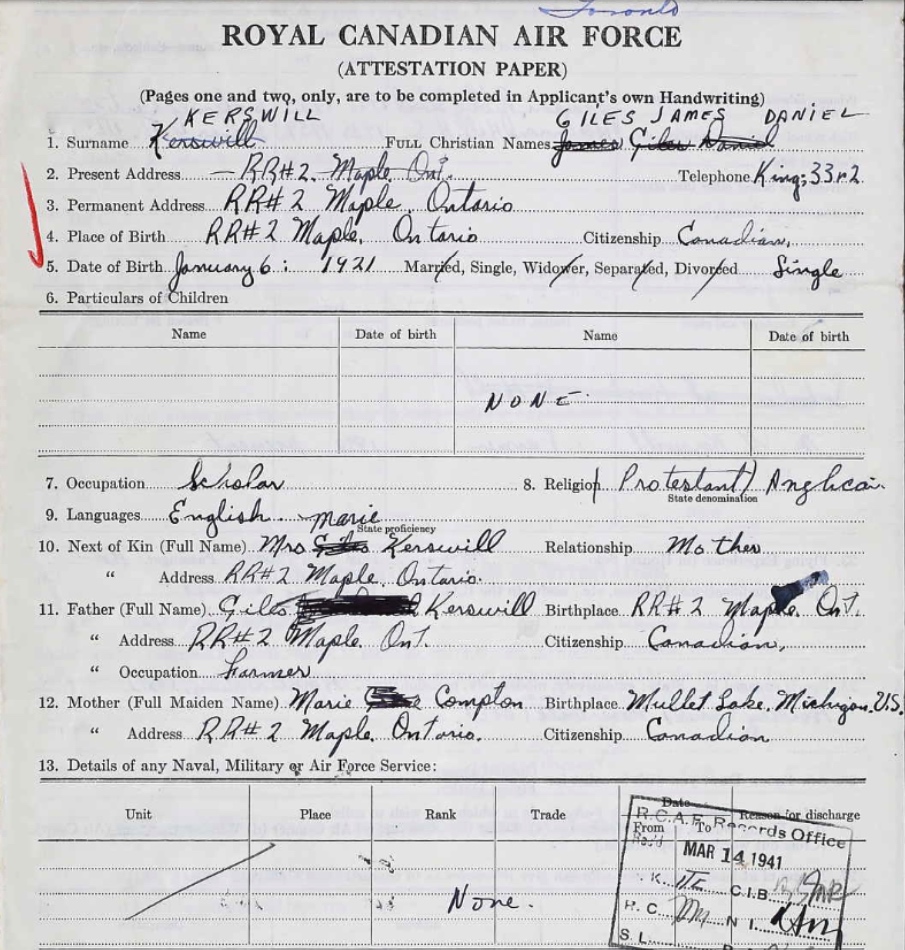 Toronto
ROYAL CANADIAN AIR FORCE
(ATTESTATION PAPER)
(Pages one and two, only, are to be completed in Applicant's own Handwriting)
KERSWILL GILES JAMES DANIEL
1. Surname Kerswill FULL Christian Names James Giles Daniel
2. Present Address RR#2. Maple Ont. Telephone King; 33 r 2
3. Permanent Address RR# 2 Maple, Ontario
4. Place of Birth RR# 2 Maple, Ontario Citizenship Canadian,
5. Date of Birth January 6: 1921 Married, Single, Widower, Separated, Divorced Single
6. Particulars of Children
Name Date of birth Name Date of birth
NONE
7. Occupation Scholar 8. Religion (Protestant) Anglican
State denomination
9. Languages English
State proficiency
Marie
10. Next of Kin (Full Name) Mrs Giles Kerswill Relationship Mother
" Address RR#2 Maple, Ontario.
11. Father (Full Name) Giles Kerswill Birthplace RR# 2 Maple. Ont.
" Address RR# 2 Maple. Ont. Citizenship Canadian,
" Occupation Farmer
12. Mother (Full Maiden Name) Marie Compton Birthplace Mullet Lake, Michigan. U.S.
" Address RR# 2 Maple. Ontario. Citizenship Canadian
13. Details of any Naval, Military or Air Force Service:
Unit Place Rank Trade Date Reason for discharge
From To
None.
R.C.A.F. Records Office
Rec'd
MAR 14 1941
K. C.I.B.
R.C. N I.
S.L.